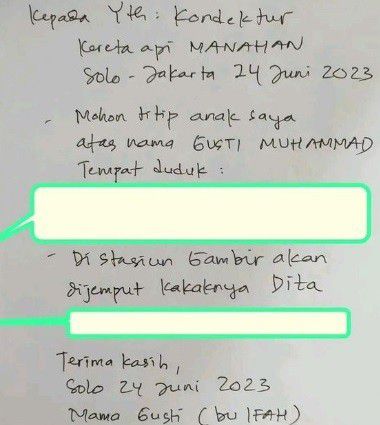 Kepada Yth: Kondektur
Kereta api MANAHAN
Solo - Jakarta 24 Juni 2023
- Mohon titip anak saya
atas nama GUSTI MUHAMMAD
Tempat duduk :
- Di Stasiun Gambir akan
dijemput kakaknya Dita
Terima kasih,
Solo 24 Juni 2023
Mama Gusti (bu IFAH)